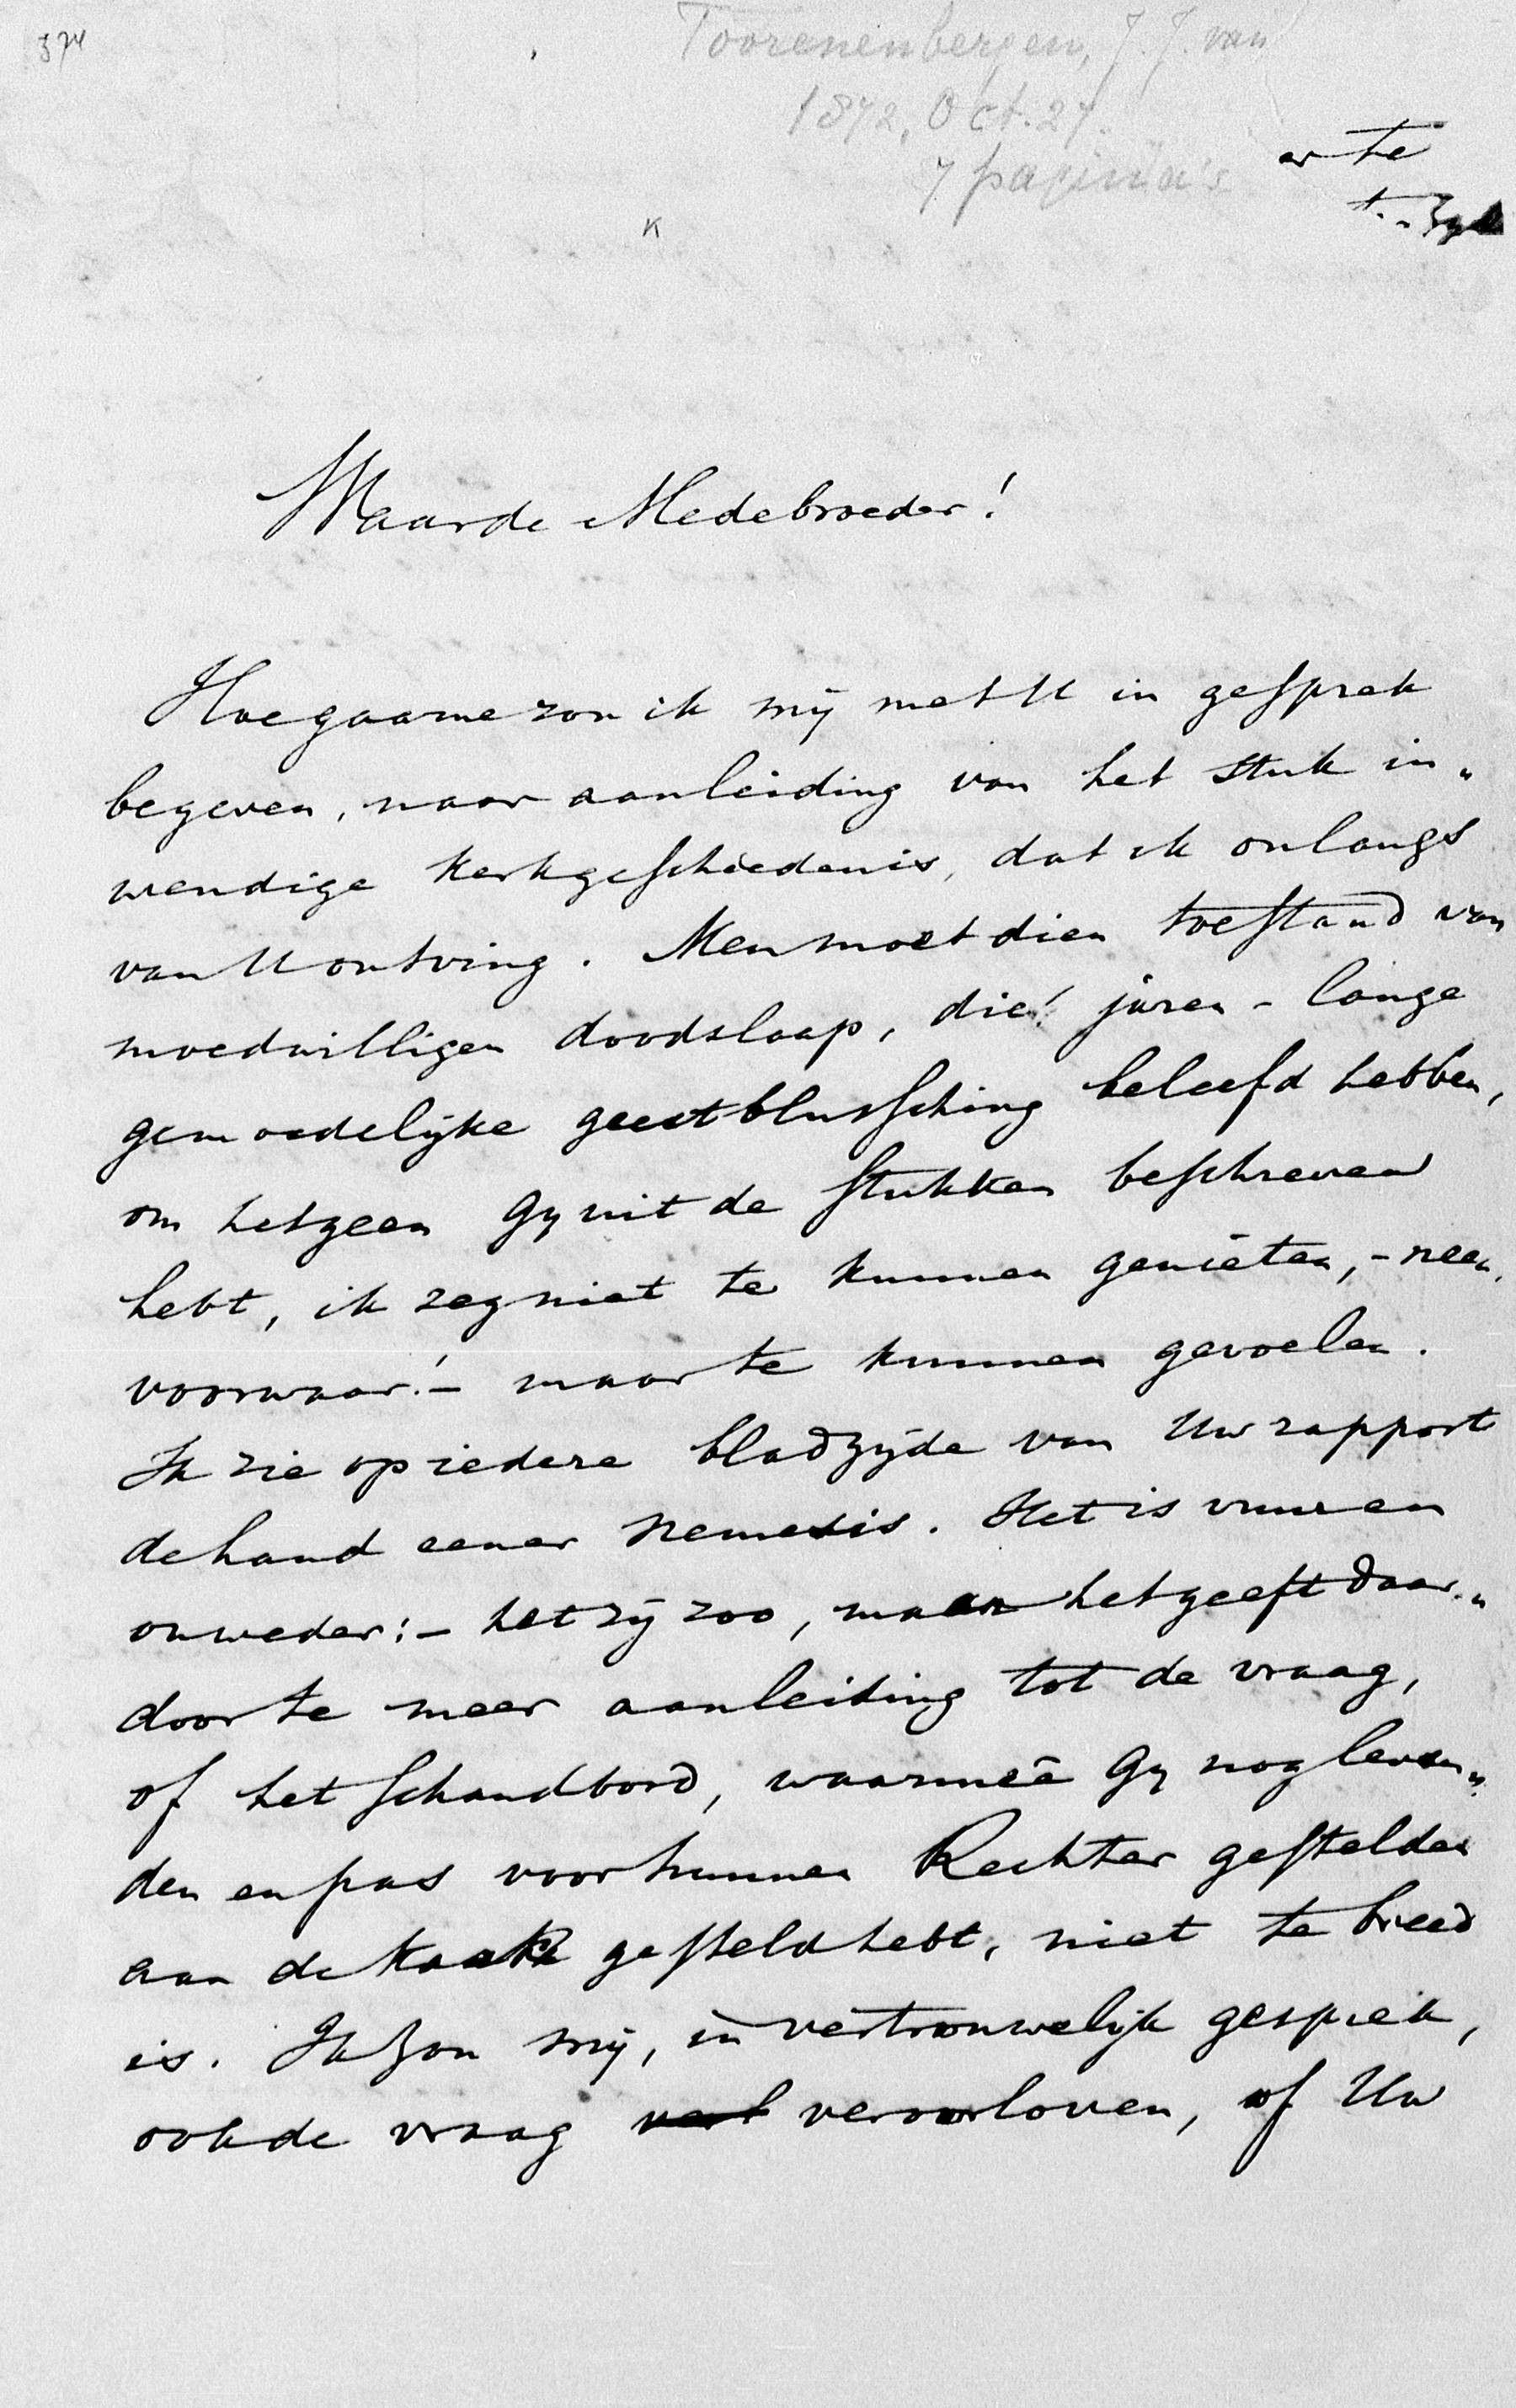 374
Toorenenbergen, J.J. van
1872, Oct. 27.
7 pagina's
te
K
Waarde Medebroeder!
Hoe gaarne zou ik mij met U in gesprek
begeven, naar aanleiding van het stuk in„
wendige kerkgeschiedenis, dat ik onlangs
van U ontving. Men moet dien toestand van
moedwilligen doodslaap, die! jaren-lange
gemoedelijke geestblussching beleefd hebben,
om hetgeen Gy uit de stukken beschreven
hebt, ik zeg niet te kunnen genieten, - neen,
voorwaar! - maar te kunnen gevoelen.
Ik zie op iedere bladzijde van Uw rapport
de hand eener Nemesis. Het is vuur en
onweder: - het zij zoo, maar het geeft daar„
door te meer aanleiding tot de vraag,
of het schandbord, waarmeê Gy nog leven„
den en pas voor hunnen Rechter gestelden
aan de kaak gesteld hebt, niet te breed
is. Ik zou mij, in vertrouwelijk gesprek,
ook de vraag veroorloven, of Uw